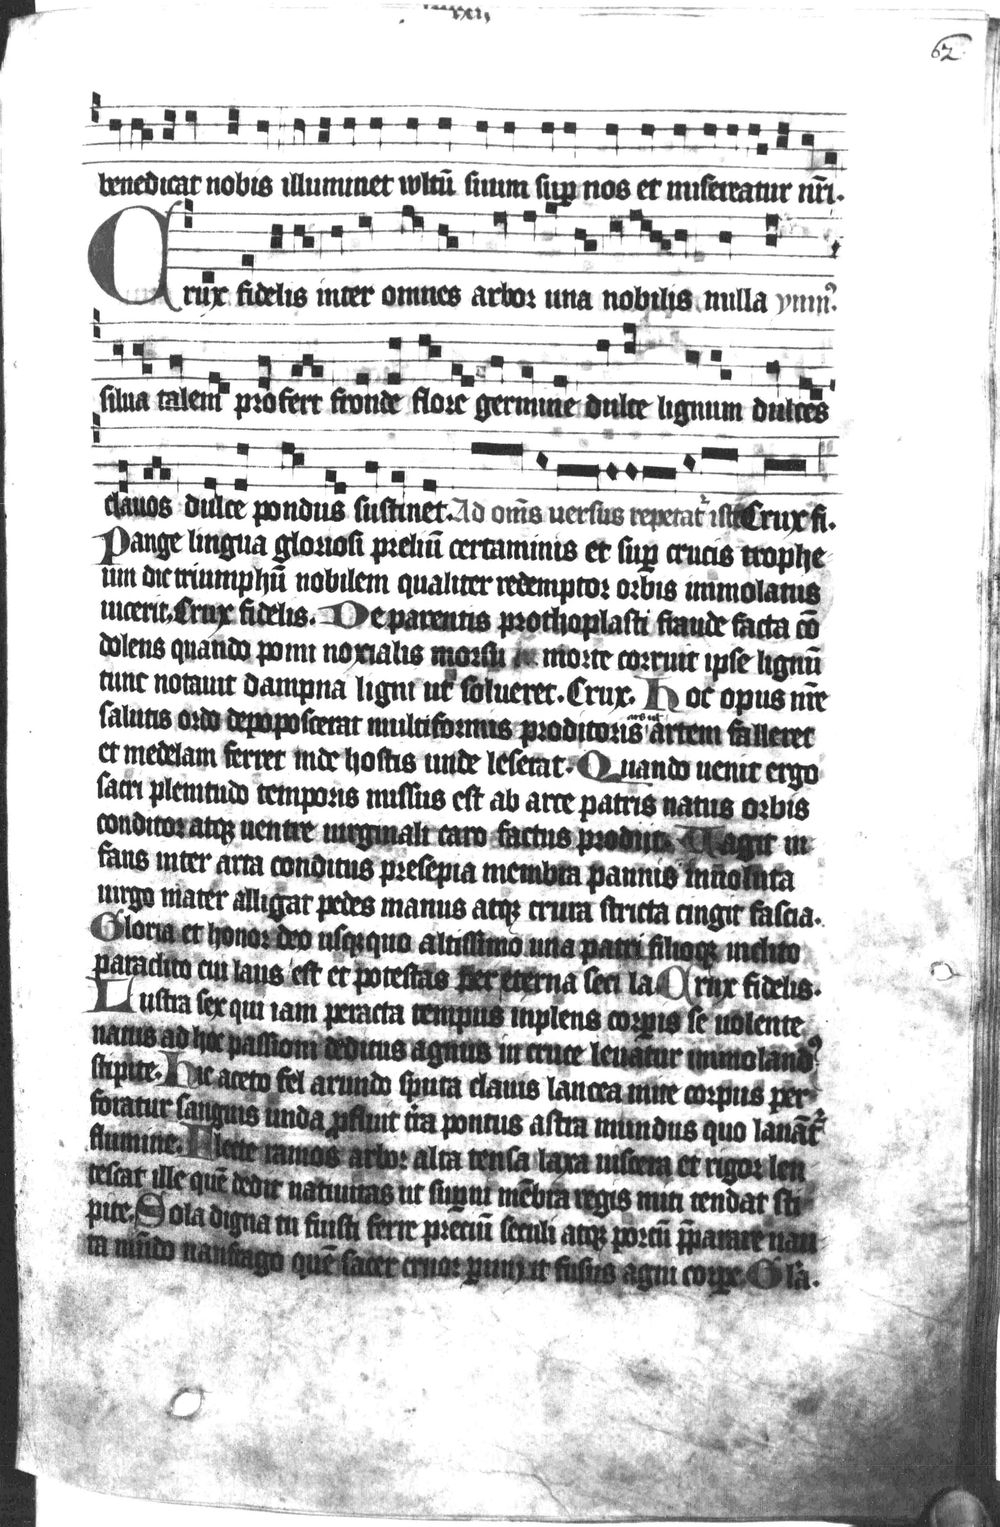 62
benedicat nobis illuminet wltū suum sup nos et misereatur nr̄i.
Crux fidelis inter omnes arbor una nobilis nulla ymn9.
silua talem profert fronde flore germine dulce lignum dulces
clauos dulce pondus sustinet. Ad om̄s uersus repetat᷑ iste Crux fi.
Pange lingua gloriosi preliū certaminis et sup crucis trophe
um dic triumphū nobilem qualiter redemptor orbis immolatus
uicerit. Crux fidelis. De parentis prothoplasti fraude facta cō
dolens quando pomi noxialis morsu in morte corruit ipse lignū
tunc notauit dampna ligni ut solueret. Crux. Hoc opus nr̄e
salutis ordo depoposcerat multiformis proditoris artem falleret
et medelam ferret inde hostis unde leserat. Quando uenit ergo
sacri plenitudo temporis missus est ab arce patris natus orbis
conditor atqꝫ uentre uirginali caro factus prodiit. Uagit in
fans inter arta conditus presepia membra pannis inuoluta
uirgo mater alligat pedes manus atqꝫ crura stricta cingit fascia.
Gloria et honor deo usqꝫquo altissimo una patri filioqꝫ inclito
paraclito cui laus est et potestas per eterna secl la. Crux fidelis.
Lustra sex qui iam peracta tempus inplens corꝑis se uolente
natus ad hoc passioni deditus agnus in cruce leuatur immoland9
stipite. Hic aceto fel arundo sputa clauis lancea mite corpus per
foratur sanguis unda ꝓfluit t̄ra pontus astra mundus quo lauāt᷑
flumine. Flecte ramos arbor alta tensa laxa uiscera et rigor len
tescat ille quē dedit natiuitas ut suꝑni mēbra regis miti tendat sti
pite. Sola digna tu fuisti ferre preciū seculi atqꝫ portū p̄parare nau
ta mūdo naufrago quē sacer cruor ꝑunxit fusus agni corꝑe. Gl'a.